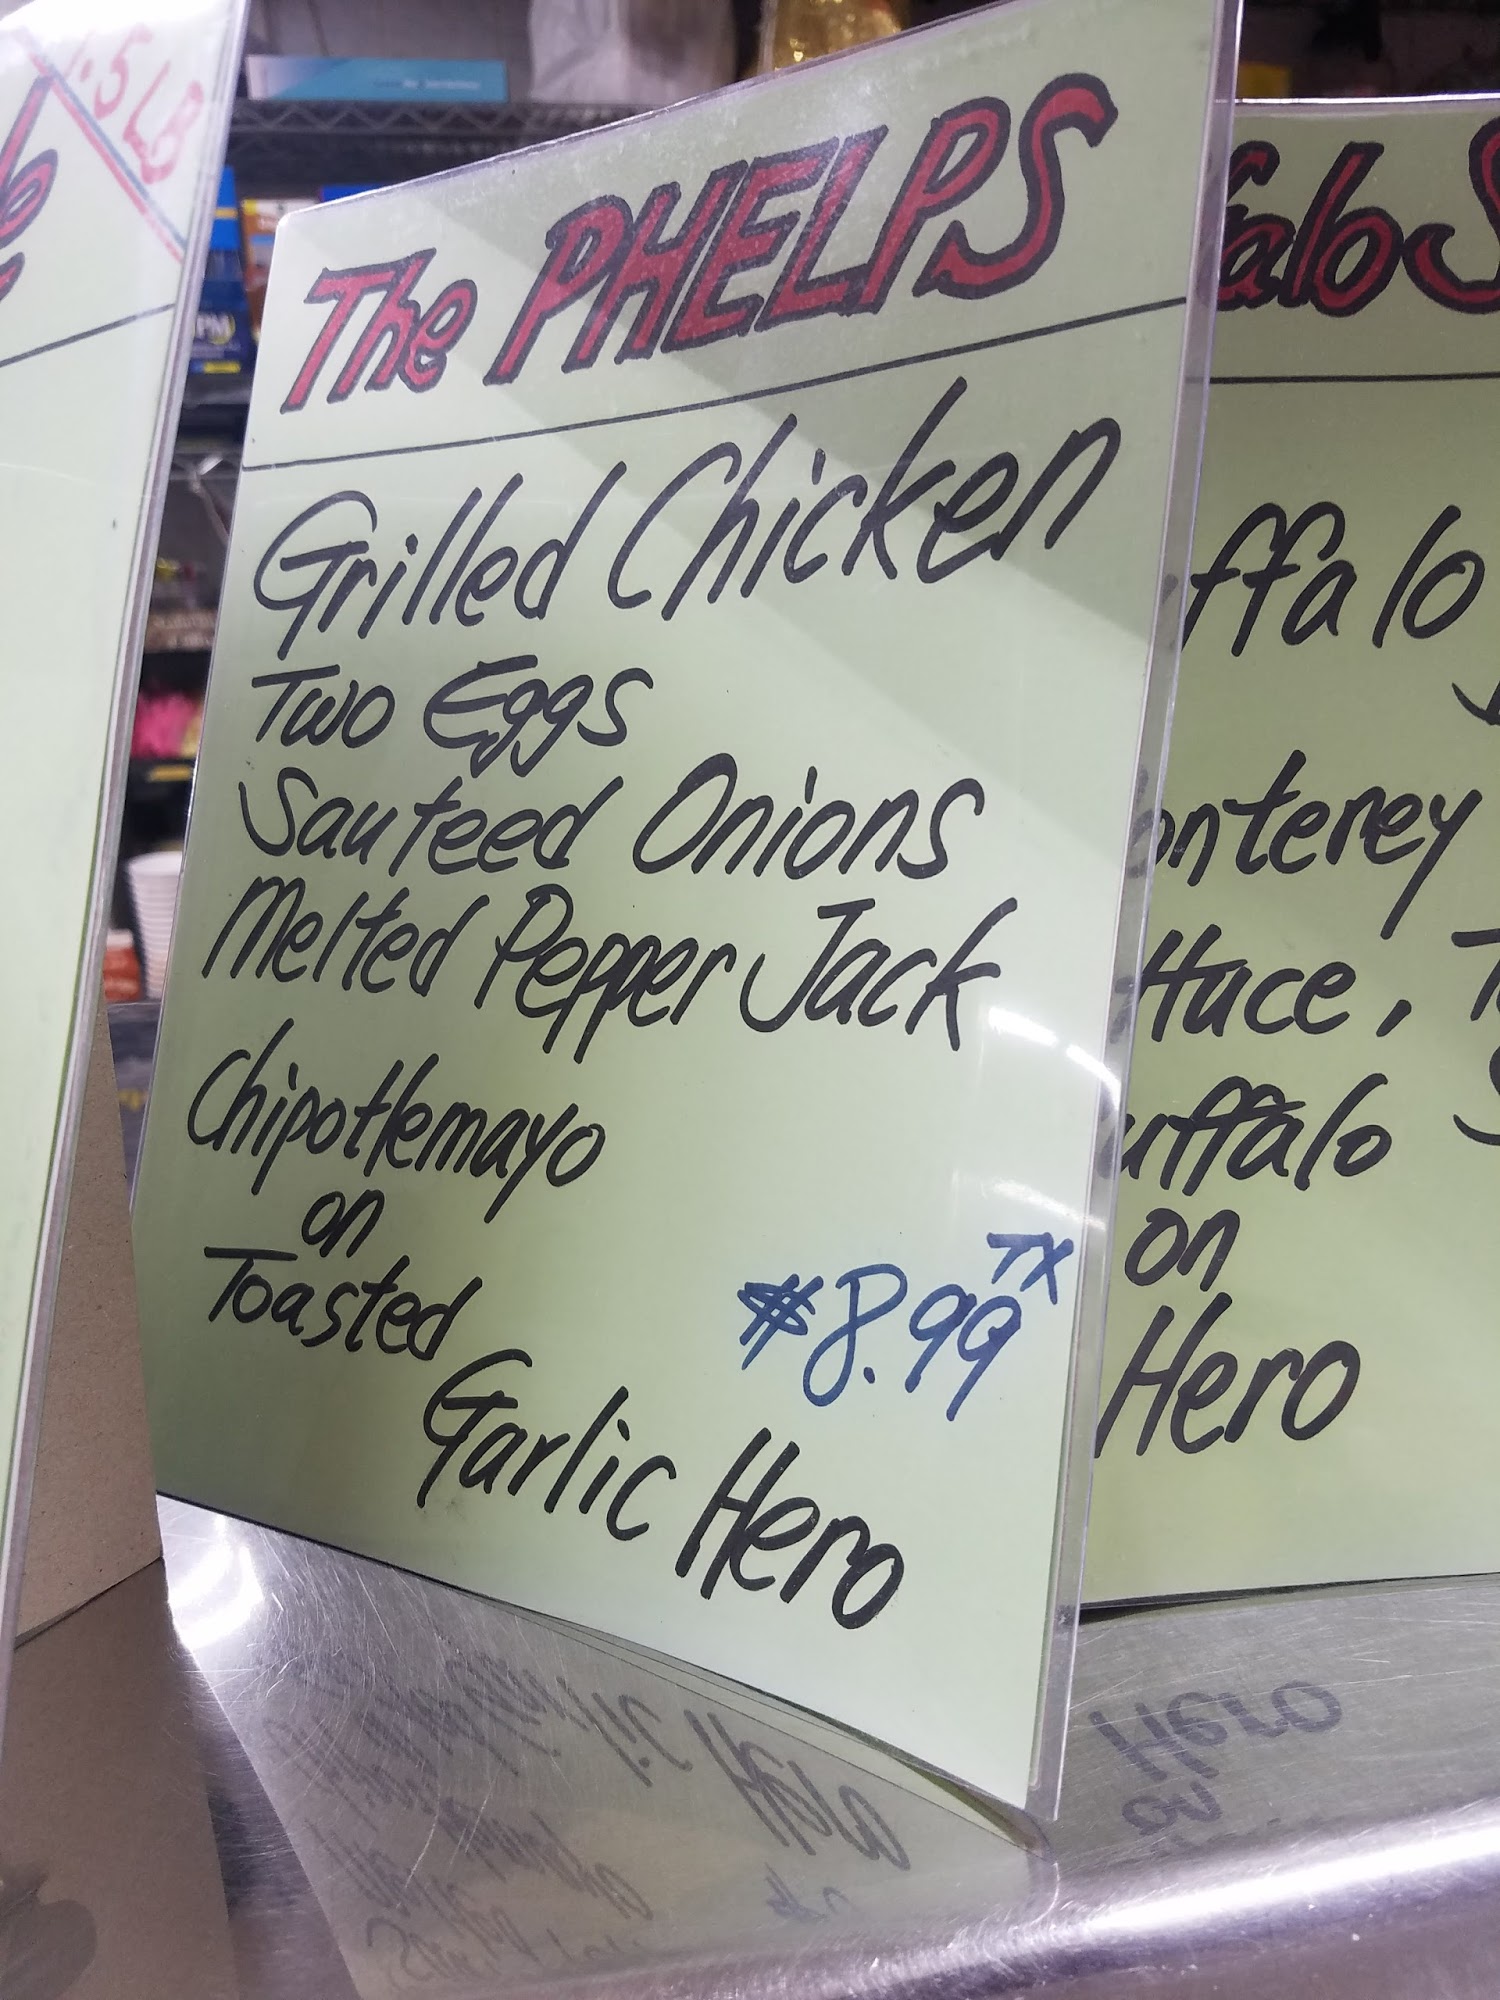 1.5 LB
The PHELPS
Grilled Chicken
Two Eggs
Sauteed Onions
Melted Pepper Jack
Chipotlemayo
on
Toasted
Garlic Hero
$8.99 TX
alo S
ffalo
onterey
ttuce,
uffalo
on
Hero
PM